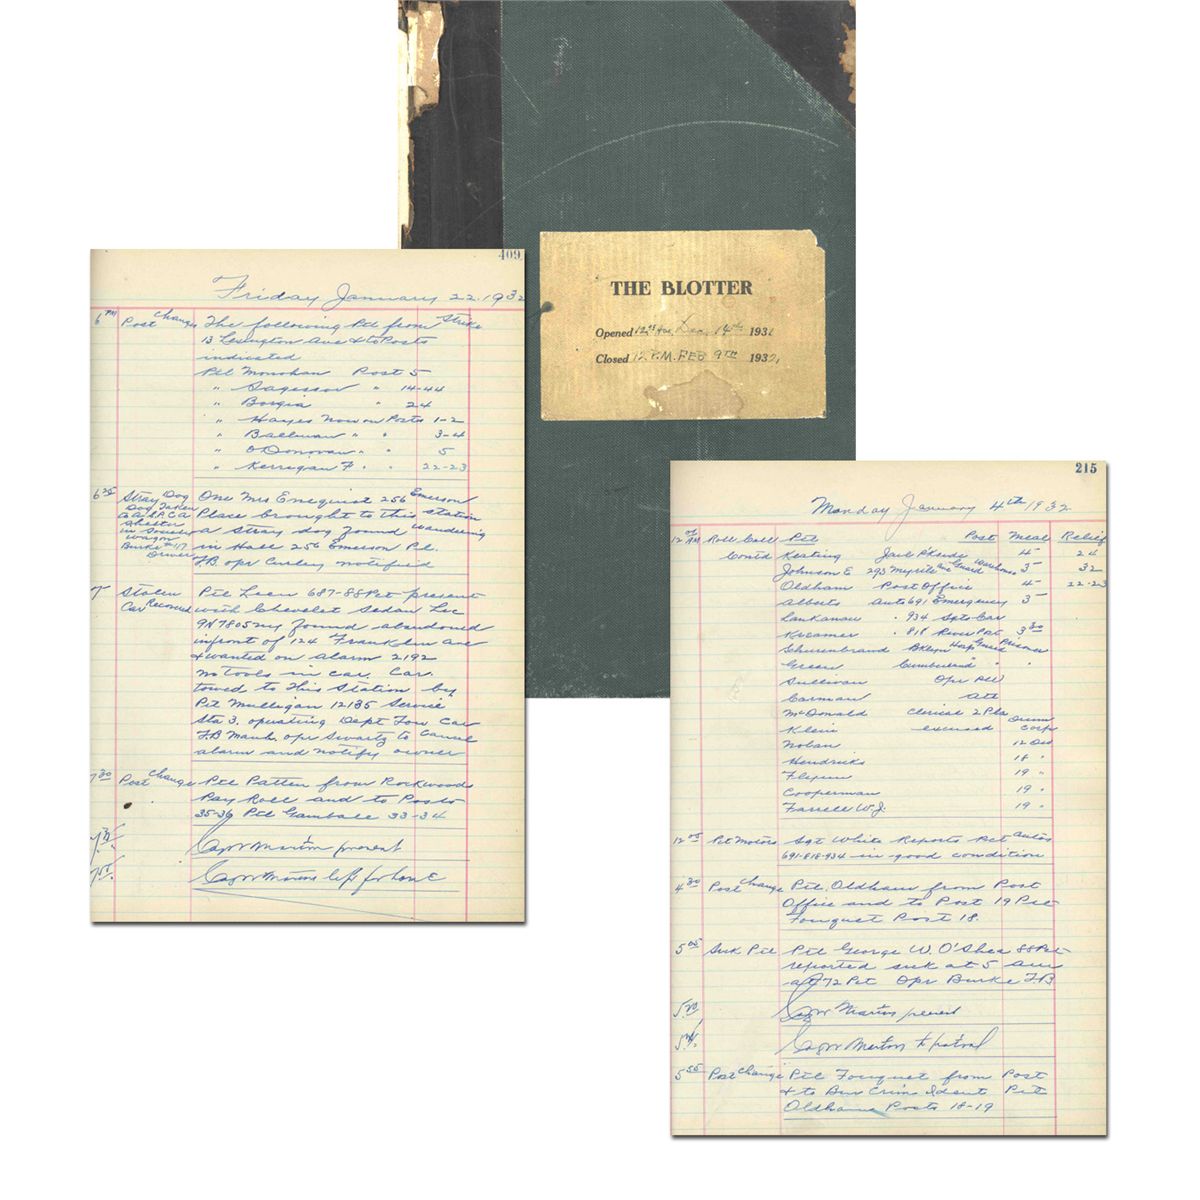 THE BLOTTER
Opened Dec. 14th 1931
Closed 12 P.M. FEB 9TH 1932,
409
Friday January 22, 1932
6 PM Post Change The following Ptl from Strike
13 Lexington Ave & to Posts
indicated
Ptl Monohan Post 5
" " 14-44
" Borgia " 24
" Hayes Now on Posts 1-2
" Ballman " " 3-4
" O'Donovan " " 5
" Kerrigan F " " 22-23
6 25 Stray Dog One Mrs Enequist 256 Emerson
Dog Taken Place brought to this station
to A.S.P.C.A a stray dog found wandering
Shelter
in wagon in Hall 256 Emerson Pl.
Burke #117 T.B. opr Curley notified
Driver
7 Stolen Ptl Leen 687-88Pct present
Car Recovered with Chevelet Sedan Lic
9N7805 NY found abandoned
infront of 124 Franklin Ave
& wanted on alarm 2192
No tools in car. Car
towed to this Station by
Ptl Mulligan 12185 Service
Sta 3, operating Dept Tow Car
T.B Manh. opr Swartz to Cancel
alarm and notify owner
7 30 Post Change Ptl Patten from Rockwoods
Pay Roll and to Posts
35-36 Ptl Gambale 33-34
Martin present
left for home
215
Monday January 4th 1932
12 05 AM Roll Call Ptl Post Meal Relief
Contd Keating Jack Warehouse 4 24
Johnson E 293 Myrtle Ave Guard 3 32
Oldham Post Office 4 22-23
Alberts Auto 691 Emergency 3
Lankanau " 934 Sgts Car
Kreamer " 818 River Pat 3 30
Schurenbrand Bklyn Hosp Guard Prisoner
Green Cumberland " "
Sullivan Opr
Carman Att
McDonald Clerical 2 Pla
Klein excused Drum Corps
Nolan 12
Hendricks 18 "
Flynn 19 "
Cooperman 19 "
Farrell W.J. 19 "
12 05 Pct Motors Sgt White Reports Pct Autos
691-818-934 in good condition
4 30 Post Change Ptl. Oldham from Post
Office and to Post 19 Ptl
Fouquet Post 18.
5 05 Sick Ptl Ptl George W. O'Shea 88Pct
reported sick at 5 AM
at 72 Pct Opr Burke T.B
5 20 Martin present
Martin to patrol
5 55 Post Change Ptl Fouquet from Post
& to Bur Crim Ident Ptl
Oldham Posts 18-19